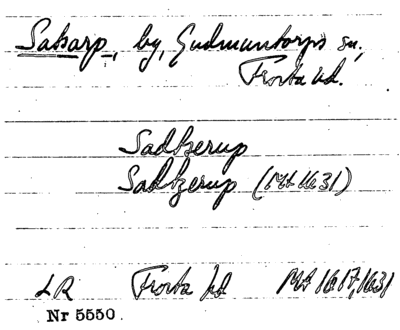 Saxarp, by, Gudmuntorps sn,
Frosta hd.
Sadtzerup
Sadtzerup (Mt 1631)
LR Frosta hd Mt 1617, 1631
Nr 5550.